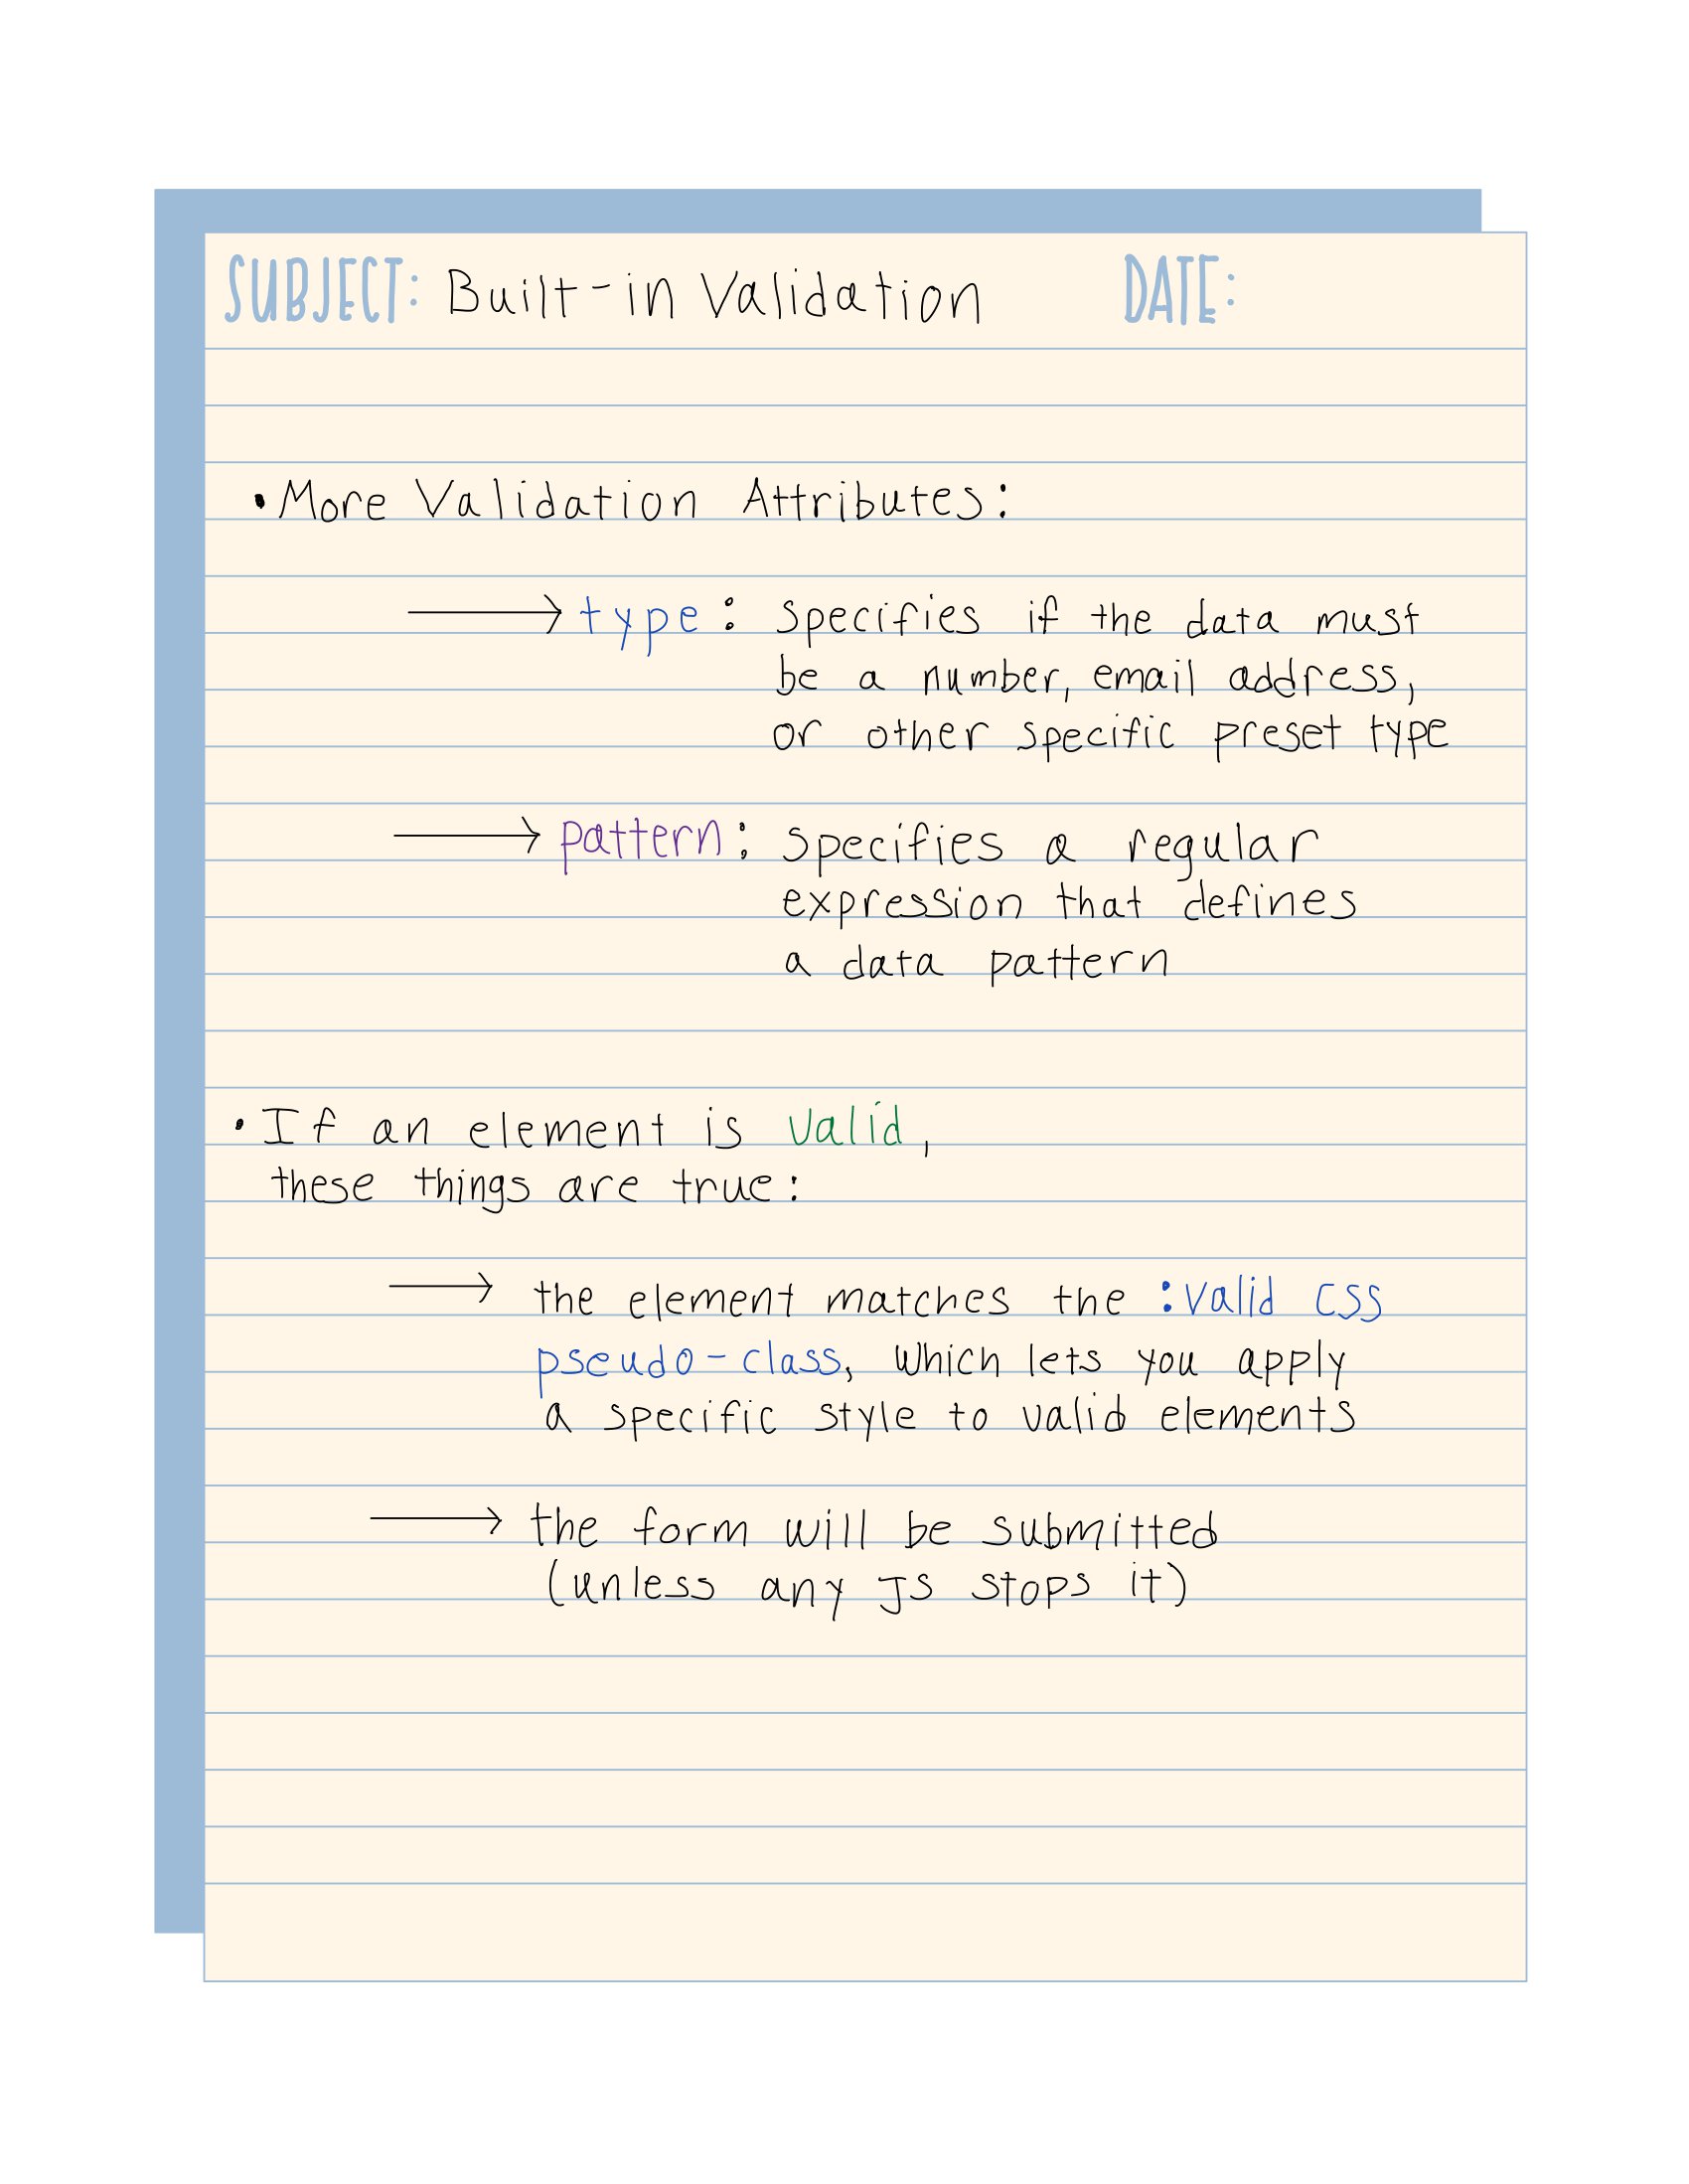 SUBJECT: Built-in Validation DATE:
• More Validation Attributes:
→ type: specifies if the data must
be a number, email address,
or other specific preset type
→ pattern: specifies a regular
expression that defines
a data pattern
• If an element is valid,
these things are true:
→ the element matches the :valid CSS
pseudo-class, which lets you apply
a specific style to valid elements
→ the form will be submitted
(unless any JS stops it)